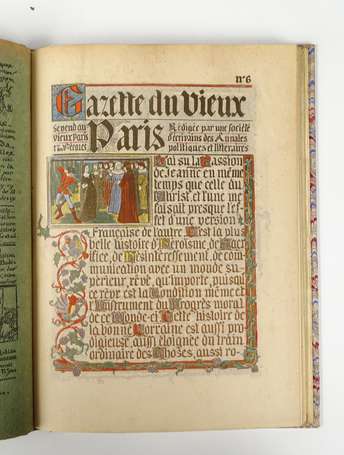 nº6
Gazette du Vieux
Paris
Se vend au
vieux Paris
Rédigée par une société
d'écrivains des Annales
politiques et littéraires
J'ai lu la Passion
de Jeanne en même
temps que celle du
Christ, et l'une me
faisait presque l'ef-
fet d'une version
Française de l'autre C'est la plus
belle histoire d'Héroïsme, de Sacri-
fice, de Désintéressement, de com-
munication avec un monde su-
périeur, rêvé, qu'importe, puisqu
ce rêve est la Condition même et
l'Instrument du Progrès moral
de ce Monde et Cette histoire de
la bonne Lorraine est aussi pro
digieuse, aussi éloignée du train
ordinaire des Choses, aussi ro-